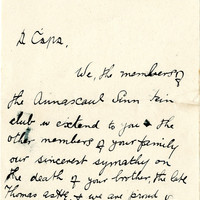 A Capa,
We, the members of
the Annascaul Sinn Fein
club w extend to you & the
other members of your family
our sincerest symathy on
the death of your brother, the late
Thomas Ashe & we are proud